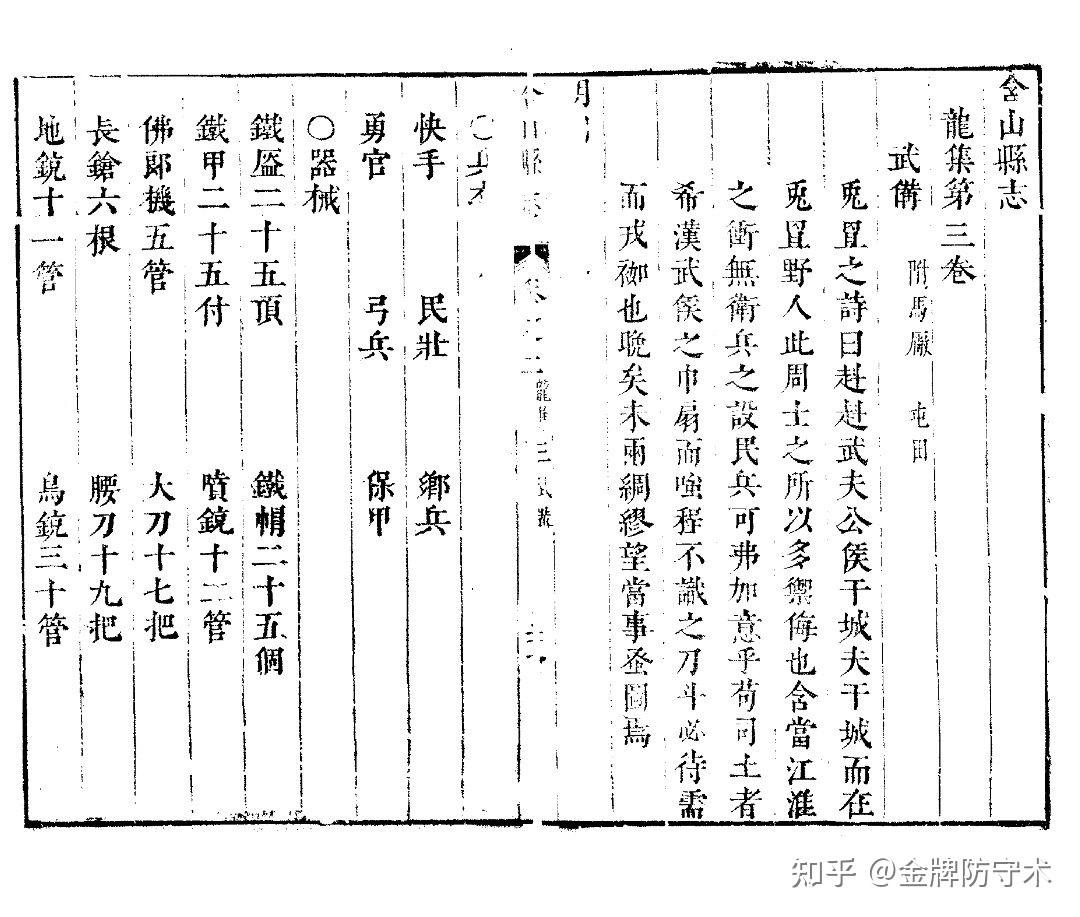 含山縣志
龍集第三卷
武備 附馬廠 屯田
兎罝之詩曰赳赳武夫公侯干城夫干城而在
兎罝野人此周士之所以多禦侮也含當江淮
之衝無衛兵之設民兵可弗加意乎苟司土者
希漢武侯之巾扇而嗤程不識之刀斗必待需
而戎衂也晚矣未雨綢繆望當事蚤圖焉
明
含山縣志 龍集 三 武備
〇兵
快手 民壯 鄉兵
勇官 弓兵 保甲
〇器械
鐵盔二十五頂 鐵帽二十五個
鐵甲二十五付 噴鏡十二管
佛郎機五管 大刀十七把
長鎗六根 腰刀十九把
地鏡十一管 鳥鏡三十管
知乎 @金牌防守术